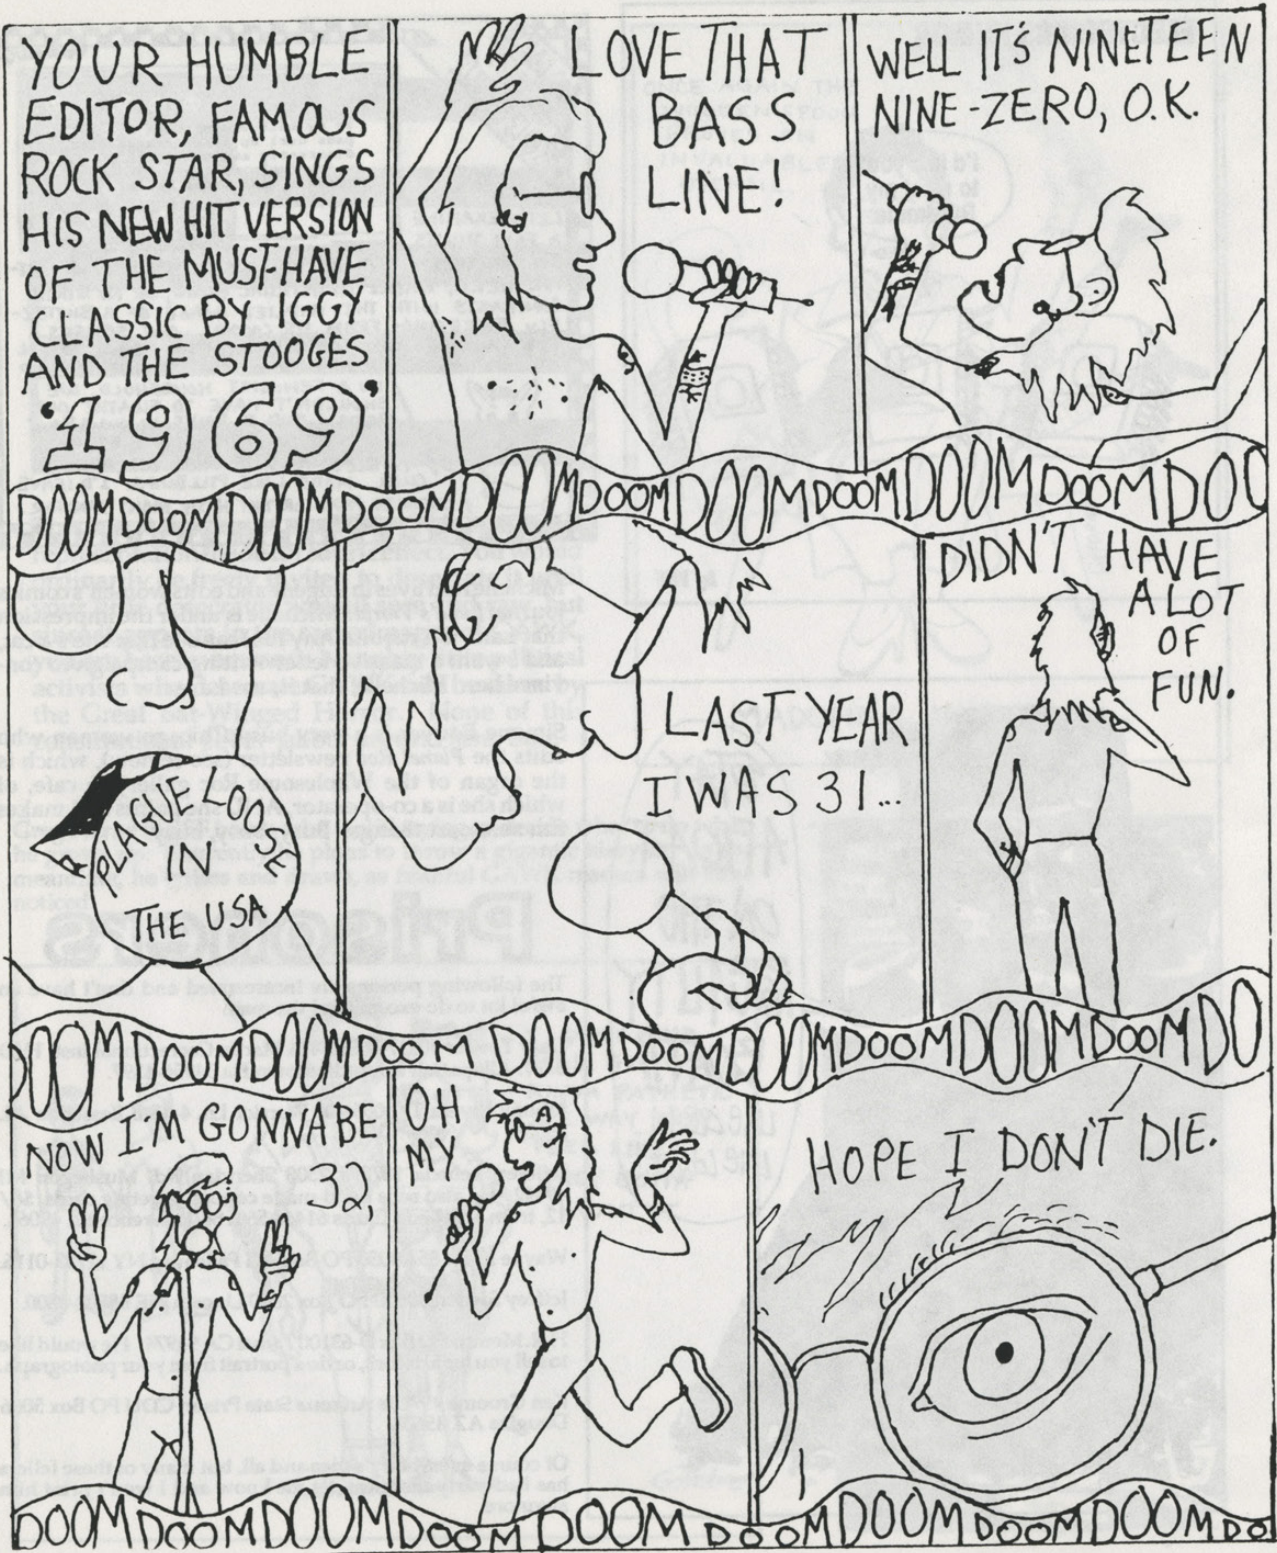 YOUR HUMBLE
EDITOR, FAMOUS
ROCK STAR, SINGS
HIS NEW HIT VERSION
OF THE MUST-HAVE
CLASSIC BY IGGY
AND THE STOOGES
'1969'
LOVE THAT
BASS
LINE!
WELL IT'S NINETEEN
NINE-ZERO, O.K.
DOOM DOOM DOOM DOOM DOOM DOOM DOOM DOOM DOOM DOOM DOO
A PLAGUE LOOSE
IN
THE USA
LAST YEAR
I WAS 31...
DIDN'T HAVE
A LOT
OF
FUN.
DOOM DOOM DOOM DOOM DOOM DOOM DOOM DOOM DOOM DOOM DO
NOW I'M GONNA BE
32,
OH
MY
A
HOPE I DON'T DIE.
DOOM DOOM DOOM DOOM DOOM DOOM DOOM DOOM DOOM DOOM DO